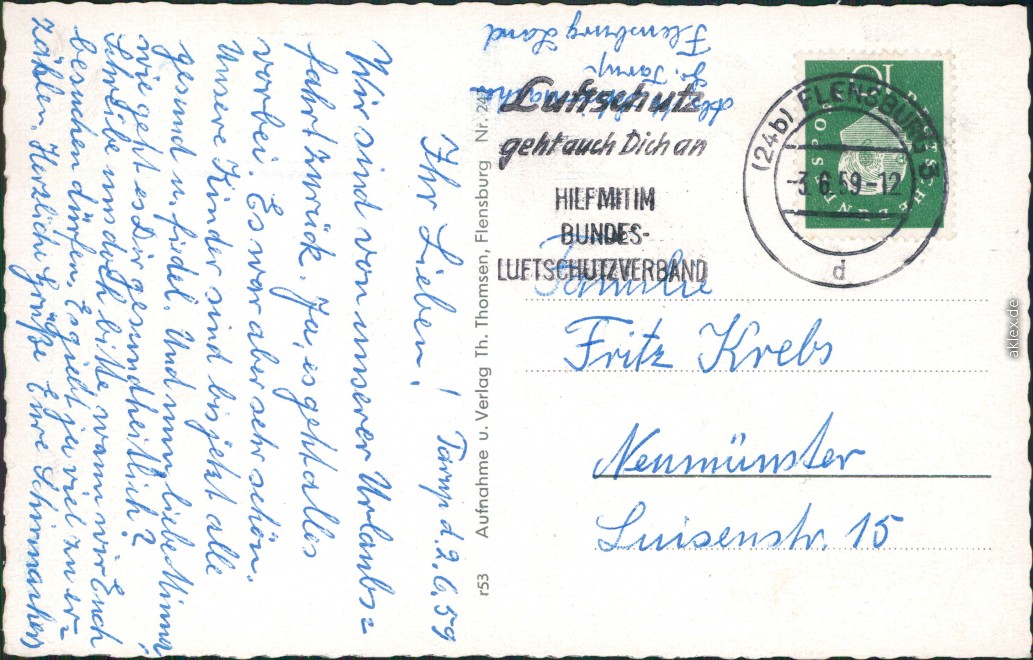 Tarup d. 2.6.59
Ihr Lieben!
Wir sind von unserer Urlaubs=
fahrt zurück. Ja, es geht alles
vorbei. Es war aber sehr schön.
Unsere Kinder sind bis jetzt alle
gesund u. fidel. Und nun, liebe Minna,
wie geht es Dir gesundheitlich?
Schreibe uns doch bitte wann wir Euch
besuchen dürfen. Es giebt ja viel zu er=
zählen. Herzliche Grüße Eure Schirmachers
r53 Aufnahme u. Verlag Th. Thomsen, Flensburg Nr. 24
Abs.
Tarup
Flensburg Land
Luftschutz
geht auch Dich an
HILF MIT IM
BUNDES-
LUFTSCHUTZVERBAND
(24b) FLENSBURG 3
-3.6.59-12
d
10
DEUTSCHE BUNDESPOST
Familie
Fritz Krebs
Neumünster
Luisenstr. 15
aklex.de